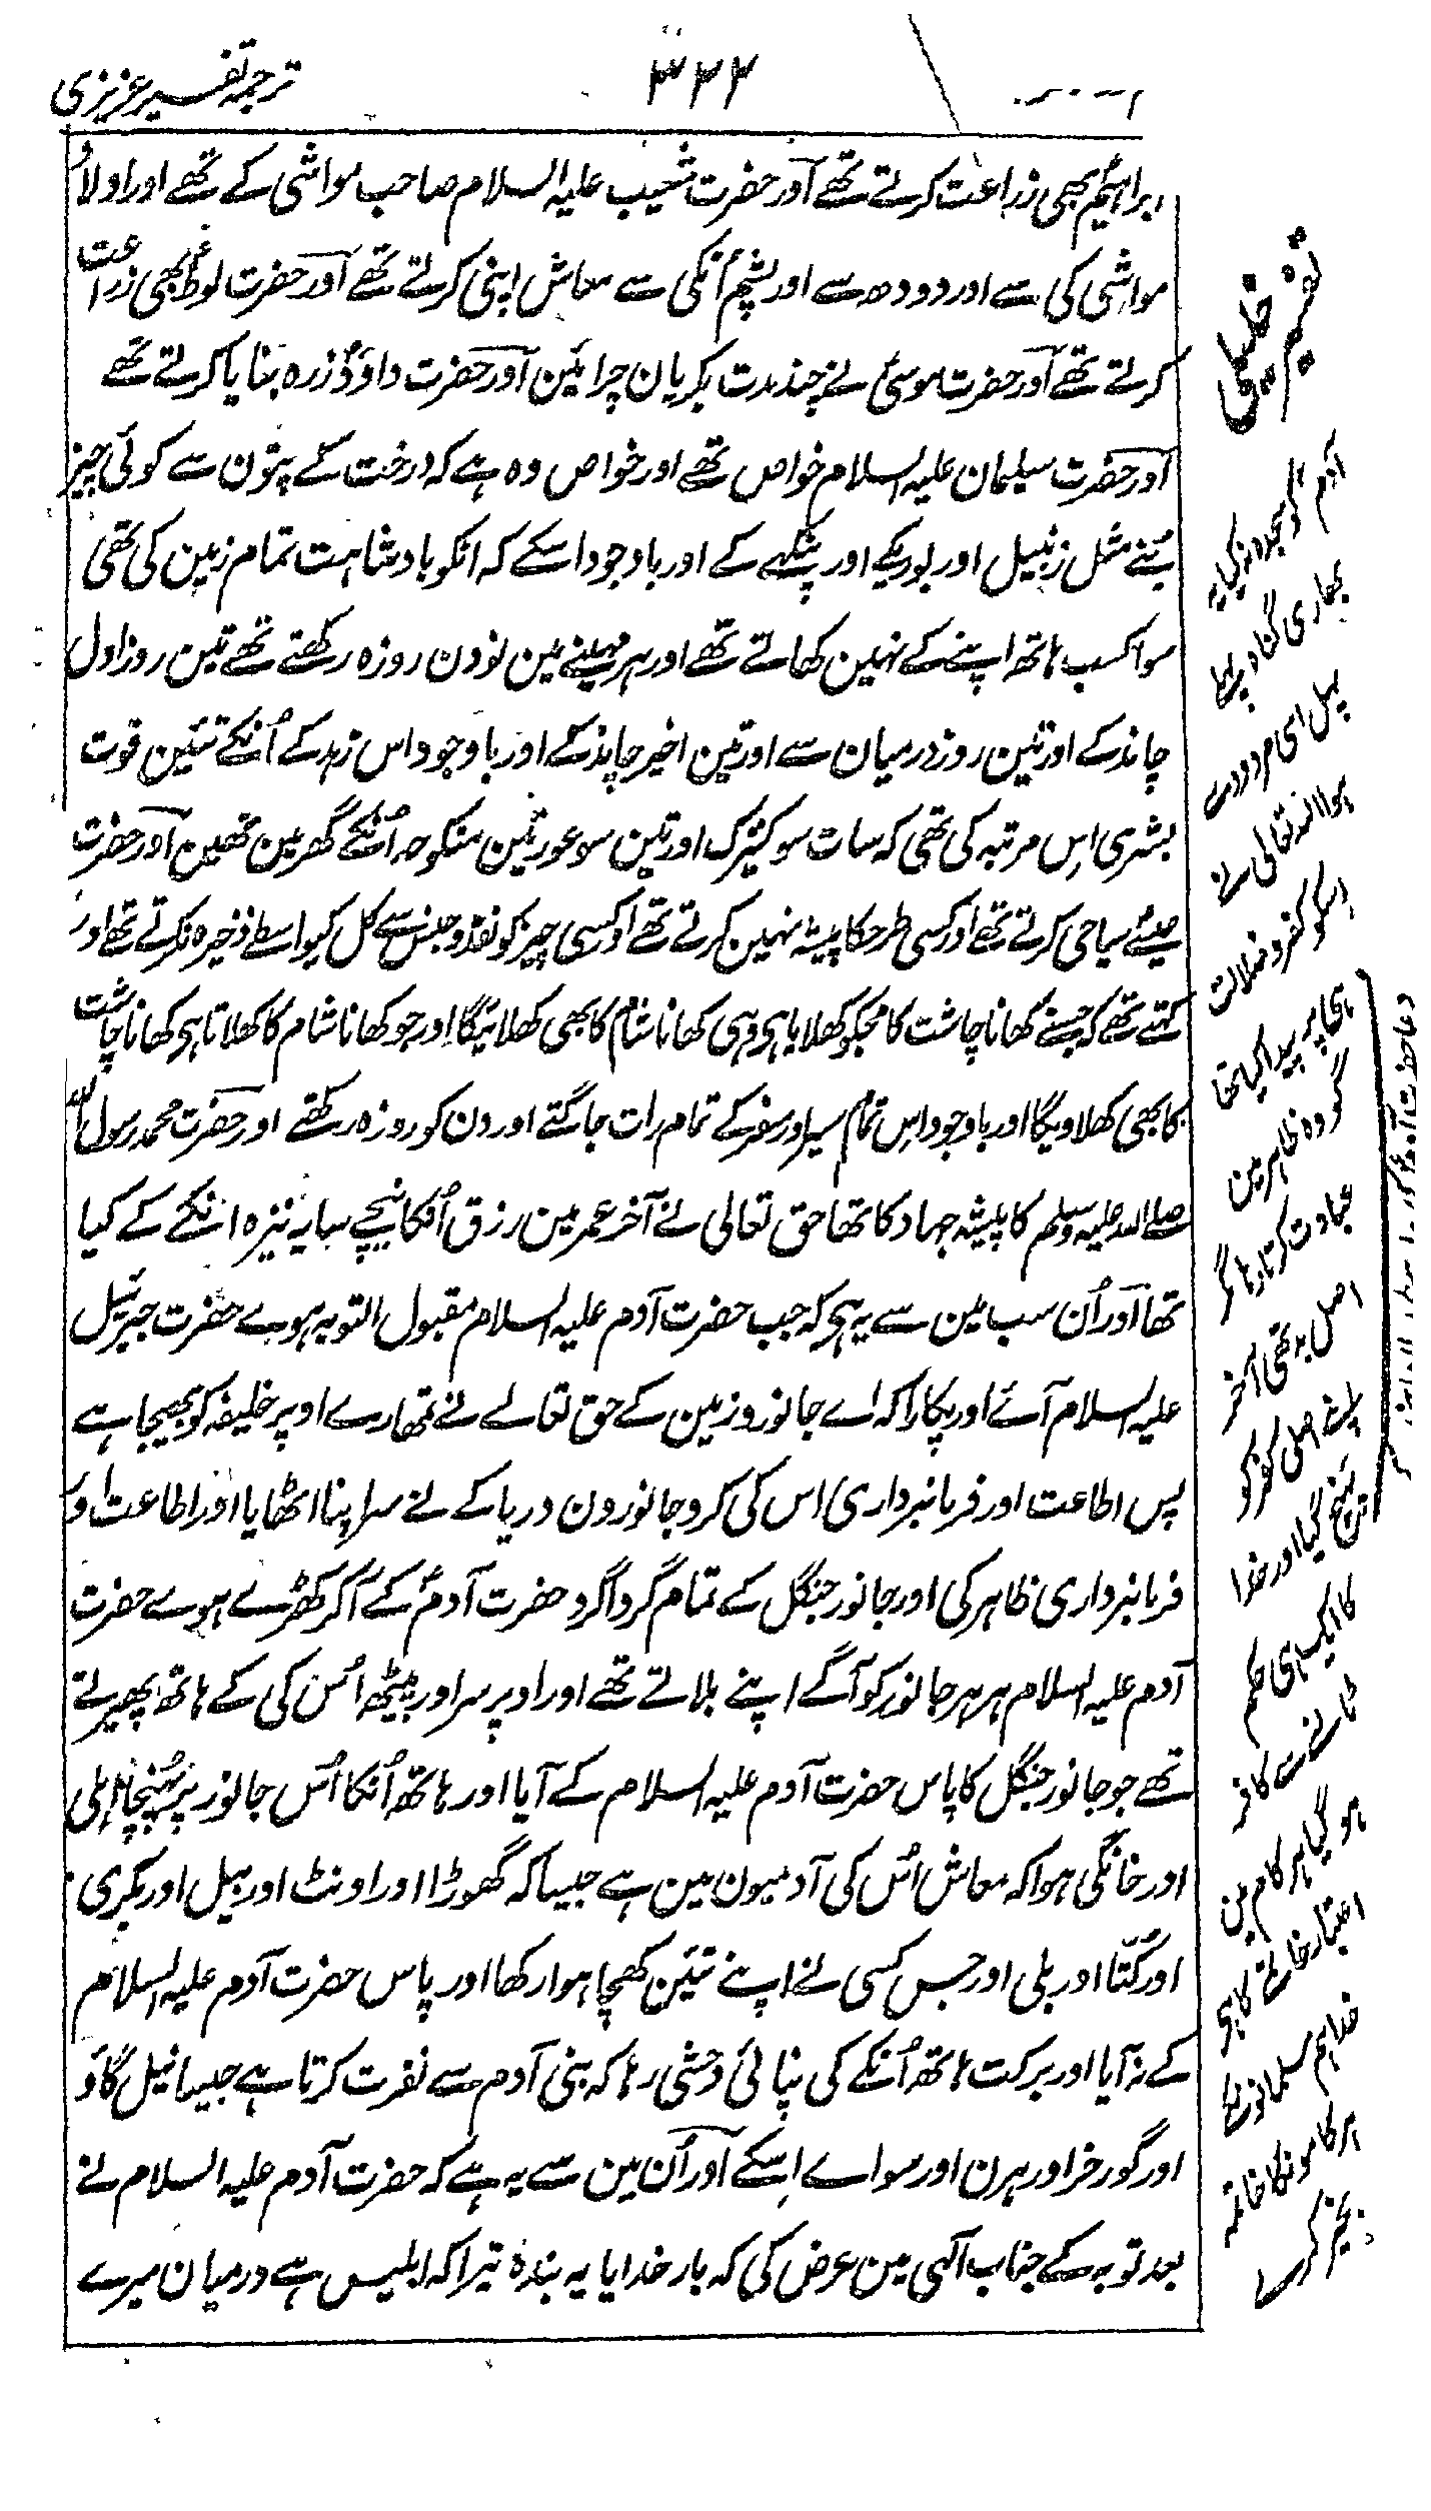 ترجمہ تفسیر عزیزی
۳۲۲
ابراہیم بھی زراعت کرتے تھے اور حضرت شعیب علیہ السلام صاحب مواشی کے تھے اور اولاً
مواشی کی سے اور دودھ سے اور پشم انکی سے معاش اپنی کرتے تھے اور حضرت لوط بھی زراعت
کرتے تھے اور حضرت موسیٰ نے چند مدت بکریان چرائین اور حضرت داؤد زرہ بنایا کرتے تھے
اور حضرت سلیمان علیہ السلام خواص تھے اور خواص وہ ہے کہ درخت کے پتون سے کوئی چیز
بنے مثل زنبیل اور بوریئے اور پنکھے کے اور باوجود اسکے کہ انکو بادشاہت تمام زمین کی تھی
سوا کسب ہاتھ اپنے کے نہین کھاتے تھے اور ہر مہینے مین نو دن روزہ رکھتے تھے تین روز اول
چاند کے اور تین روز درمیان سے اور تین اخیر چاند کے اور باوجود اس زہد کے اُنکے تئین قوت
بشری اِس مرتبہ کی تھی کہ سات سو کنیزک اور تین سو عورتین منکوحہ اُنکے گھر مین تھین اور حضرت
عیسےٰ سیاحی کرتے تھے اور کسی طرحکا پیشہ نہین کرتے تھے اور کسی چیز کو نقد و جنس سے کل کیواسطے ذخیرہ نکرتے تھے اور
کہتے تھے کہ جسنے کھانا چاشت کا مجکو کھلایا ہی وہی کھانا شام کا بھی کھلائیگا اور جو کھانا شام کا کھلاتا ہی کھانا چاشت
کا بھی کھلاویگا اور باوجود اِس تمام سیر اور سفر کے تمام رات جاگتے اور دن کو روزہ رکھتے اور حضرت محمد رسول اللہ
صلے اللہ علیہ وسلم کا پیشہ جہاد کا تھا حق تعالی نے آخر عمر مین رزق اُنکا نیچے سایہ نیزہ انکے کے کیا
تھا اور اُن سب مین سے یہ ہی کہ جب حضرت آدم علیہ السلام مقبول التوبہ ہوے حضرت جبرئیل
علیہ السلام آئے اور پکارا کہ اے جانورو زمین کے حق تعالے نے تمھارے اوپر خلیفہ کو بھیجا ہے
پس اطاعت اور فرمانبرداری اس کی کرو جانورون دریا کے نے سر اپنا اٹھایا اور اطاعت اور
فرمانبرداری ظاہر کی اور جانور جنگل کے تمام گرداگرد حضرت آدم کے آکر کھڑے ہوے حضرت
آدم علیہ السلام ہر ہر جانور کو آگے اپنے بلاتے تھے اور اوپر سر اور پیٹھ اُس کی کے ہاتھ پھیرتے
تھے جو جانور جنگل کا پاس حضرت آدم علیہ السلام کے آیا اور ہاتھ اُنکا اُس جانور پر پہنچا اہلی
اور خانگی ہوا کہ معاش اُس کی آدمیون مین ہے جیسا کہ گھوڑا اور اونٹ اور بیل اور بکری
اور کُتّا اور بلی اور جس کسی نے اپنے تئین کھچا ہوا رکھا اور پاس حضرت آدم علیہ السلام
کے نہ آیا اور برکت ہاتھ اُنکے کی نپائی وحشی رہا کہ بنی آدم سے نفرت کرتا ہے جیسا نیل گاؤ
اور گورخر اور ہرن اور سواے اِسکے اور اُن مین سے یہ ہے کہ حضرت آدم علیہ السلام نے
بعد توبہ کے جناب الٰہی مین عرض کی کہ بار خدایا یہ بندہ تیرا کہ ابلیس ہے درمیان میرے
تفسیر خلیلی
آدم کو سجدہ نہ کیا یہ
بھاری گناہ
ہوا اللہ تعالی نے
اسکو کفر و ضلالت
ہی پر پیدا کیا تھا
گو وہ ظاہر مین
عبادت کرتا رہا مگر
اصل بد تھی آخر
اپنے اصلی کفر کو
پہنچ گیا اور خدا
کا ایک ہی حکم
نماننے سے کافر
ہو گیا ہر کام مین
اعتبار خاتمے کا ہی
خدا ہم مسلمانون کے
ہر کامونکا خاتمہ
بخیر کرے